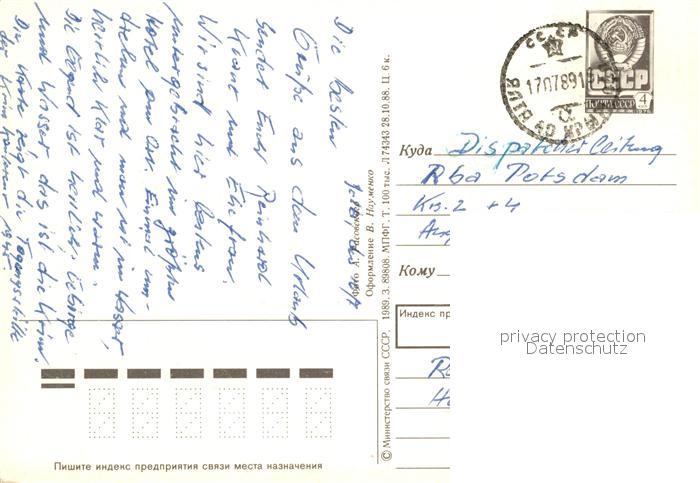 Die besten
Grüße aus dem Urlaub
sendet Euch Reinhard
Krone und Ehefrau.
Wir sind hier bestens
untergebracht im größten
Hotel am Ort. Einmal um-
drehen und man ist im Wasser,
herrlich klar und warm.
Die Gegend ist herrlich, Gebirge
und Wasser das ist die Krim.
Die Karte zeigt die
der Krim
Jalta, 17.
Фото А. Рязовского
Оформление В. Науменко
© Министерство связи СССР. 1989. З. 89808. МПФГ. Т. 100 тыс. Л 74343 28.10.88. Ц. 6 к.
СССР
ПОЧТА СССР 4
1707891
ЯЛТА
Куда Dispatcherleitung
Rba Potsdam
Kr. 2 + 4
Кому
Индекс пр
privacy protection
Datenschutz
Пишите индекс предприятия связи места назначения